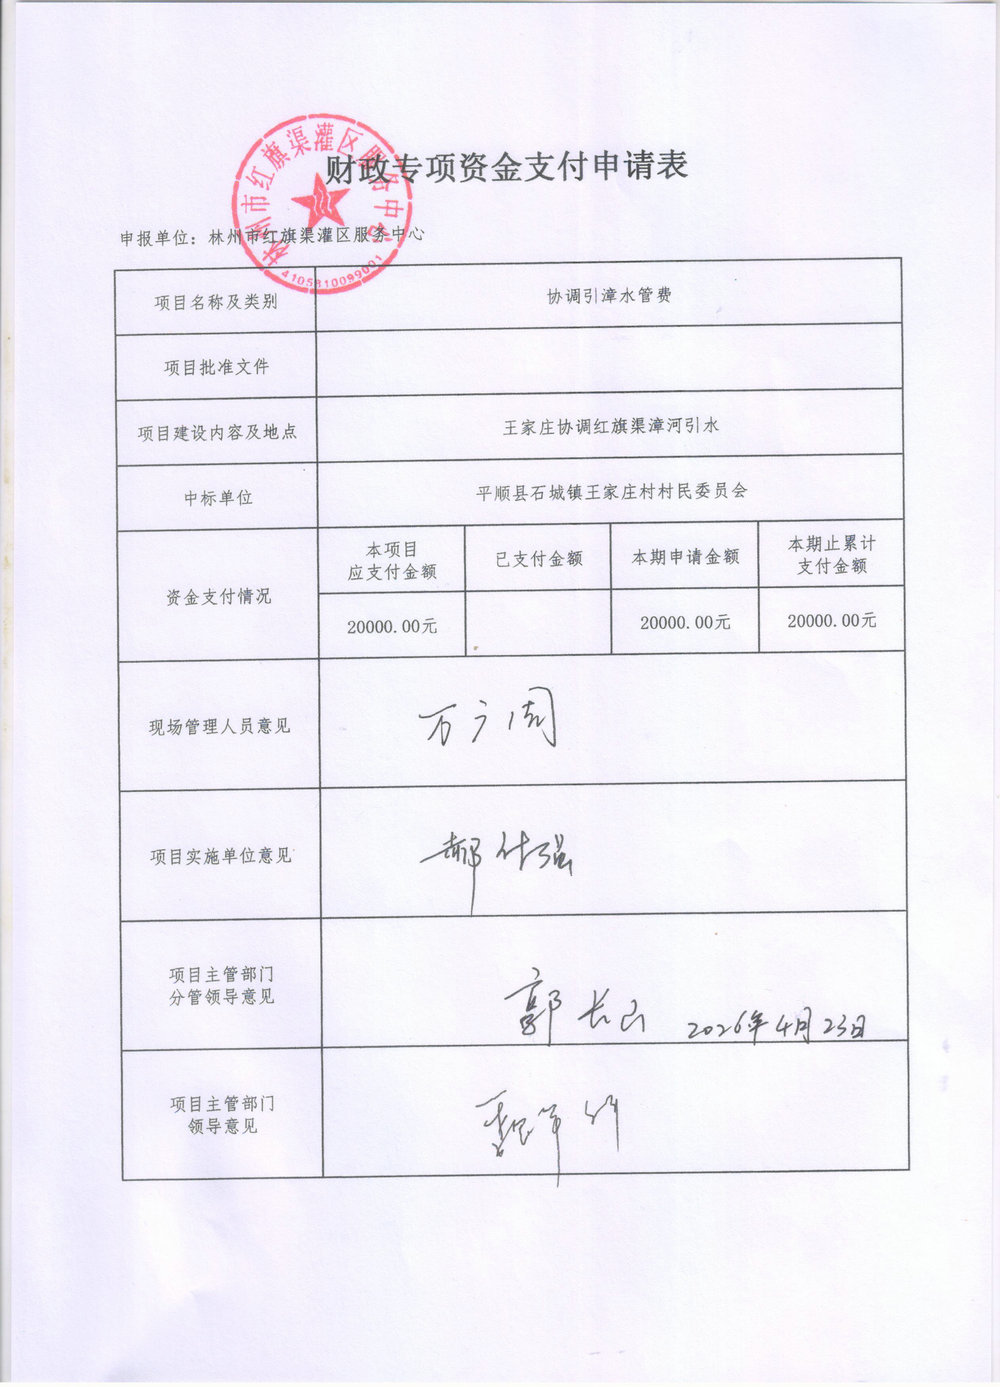 林州市红旗渠灌区服务中心
4105810099001
财政专项资金支付申请表
申报单位：林州市红旗渠灌区服务中心
项目名称及类别 协调引漳水管费
项目批准文件
项目建设内容及地点 王家庄协调红旗渠漳河引水
中标单位 平顺县石城镇王家庄村村民委员会
资金支付情况
本项目
应支付金额
已支付金额
本期申请金额
本期止累计
支付金额
20000.00元 20000.00元 20000.00元
现场管理人员意见 万广周
项目实施单位意见 郝付强
项目主管部门
分管领导意见
郭长山 2026年4月23日
项目主管部门
领导意见